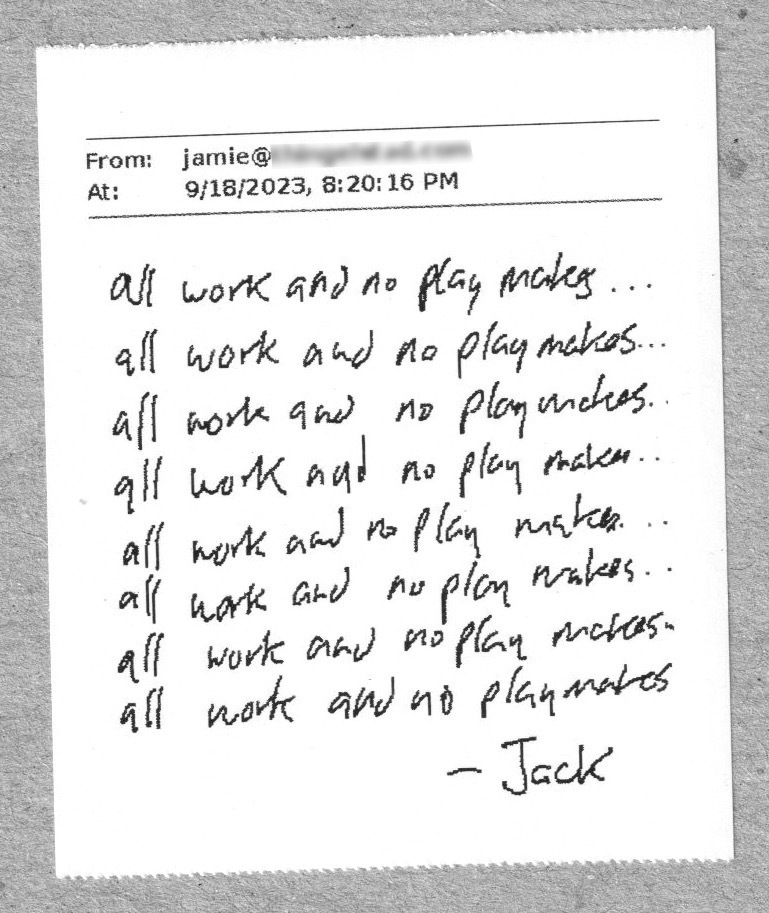 From: jamie@
At: 9/18/2023, 8:20:16 PM
all work and no play makes...
all work and no play makes...
all work and no play makes..
all work and no play makes...
all work and no play makes...
all work and no play makes...
all work and no play makes..
all work and no play makes
- Jack